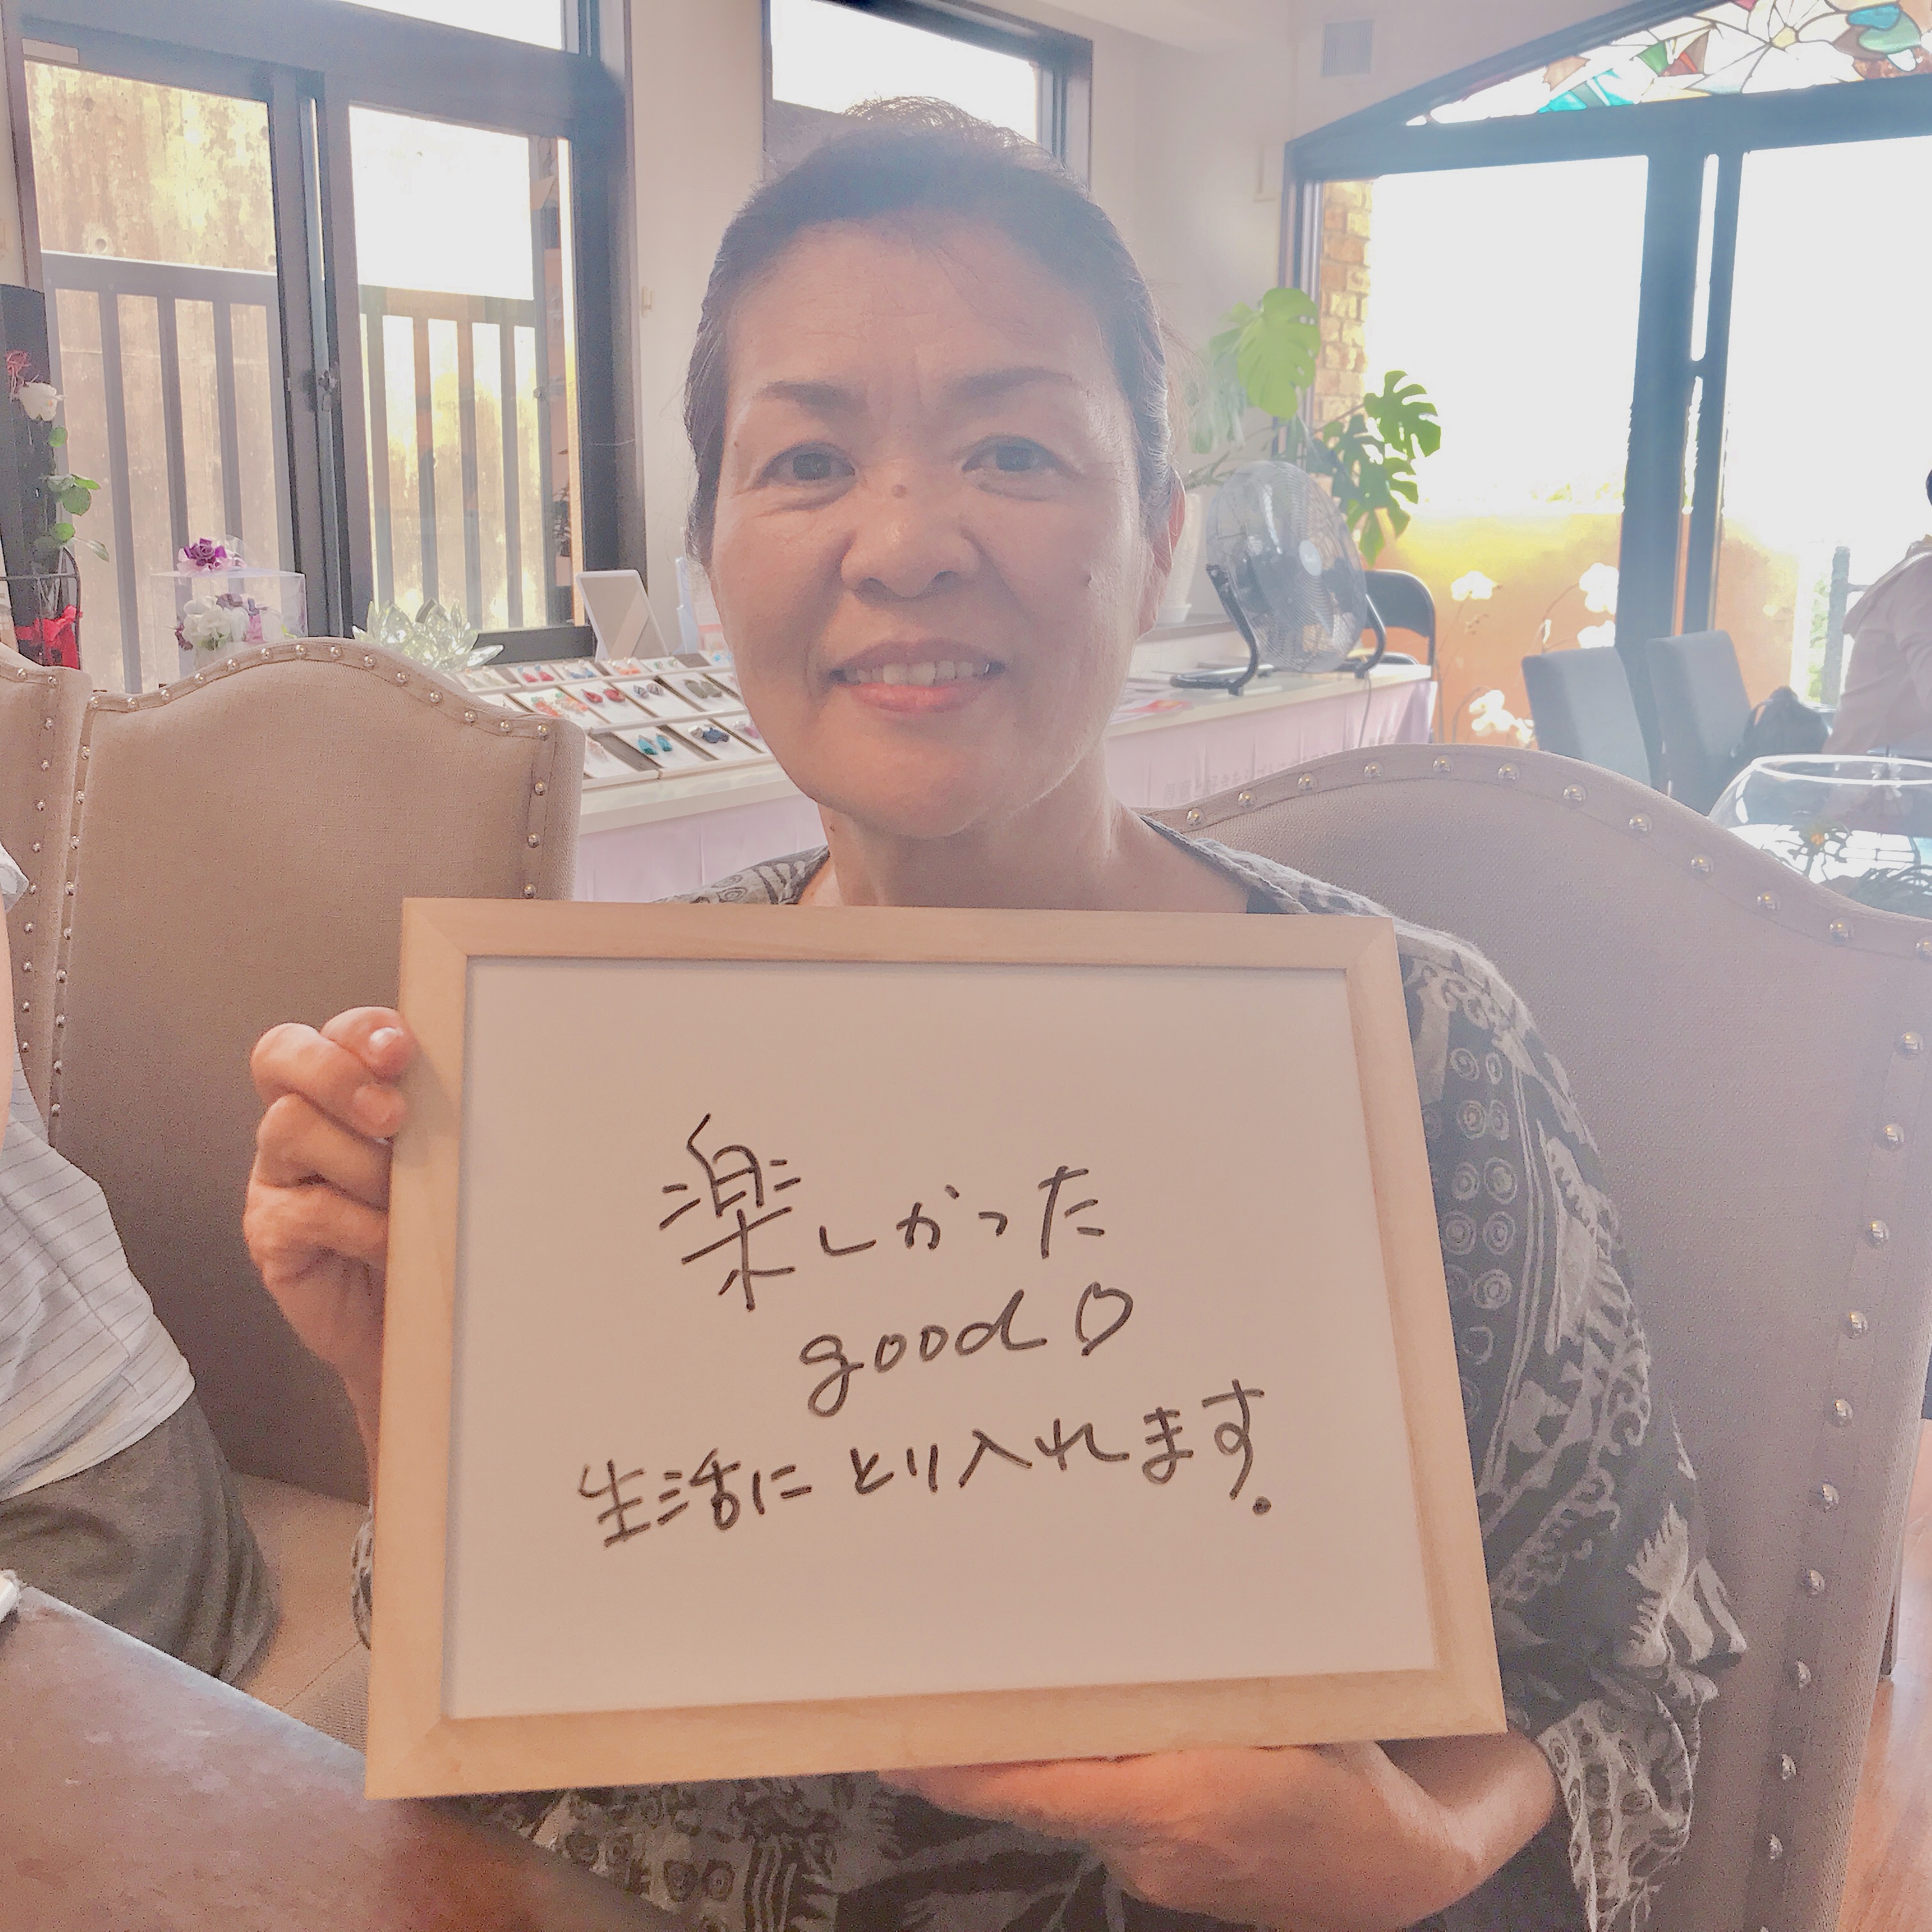 楽しかった
good♡
生活にとり入れます.